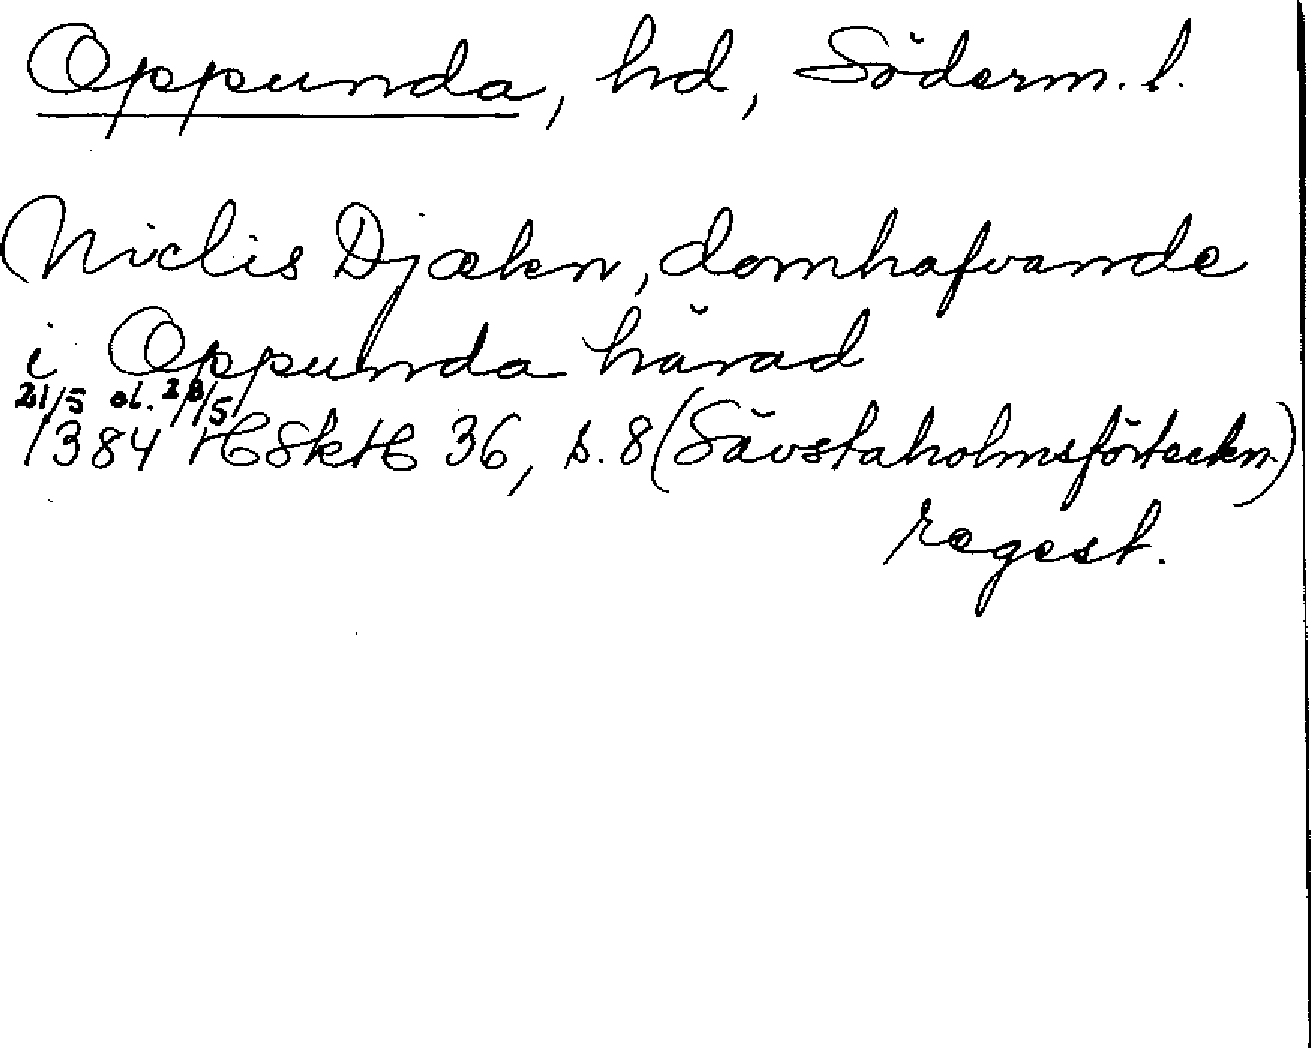 Oppunda, hd, Söderm. l.
Niclis Djækn, domhafvande
i Oppunda härad
21/5 el. 28/5
1384 HSkH 36, s. 8 (Sävstaholmsförteckn.)
regest.